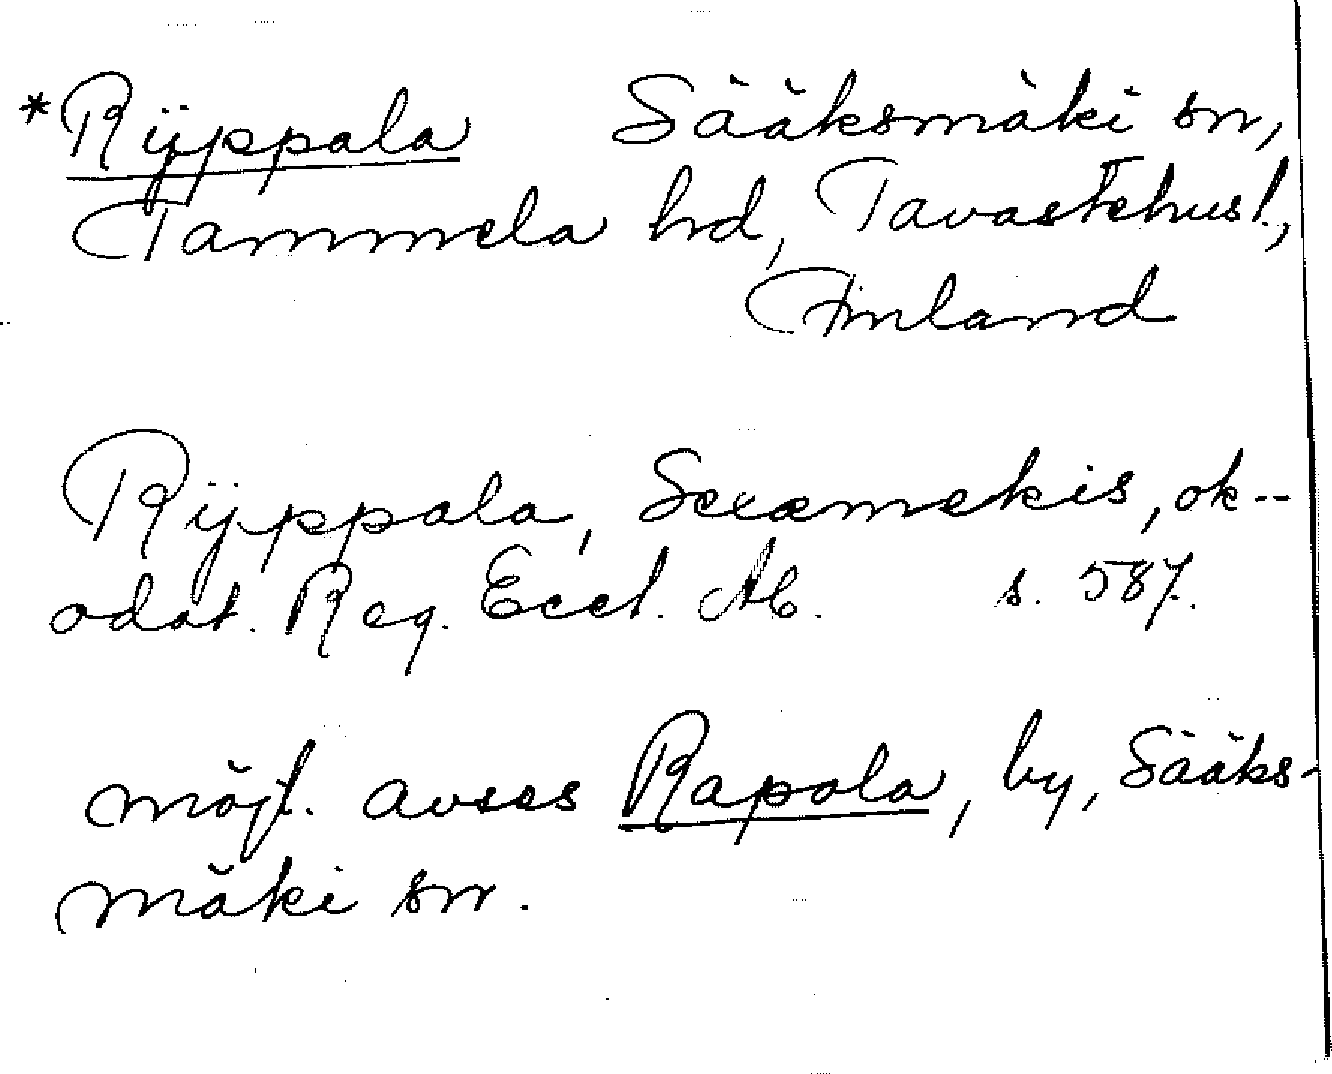 *Rÿppala Sääksmäki sn,
Tammela hd, Tavastehus l.,
Finland
Rÿppala, Sexæmekis, ok--
odat. Reg. Eccl. Ab. s. 587.
möjl. avses Rapola, by, Sääks-
mäki sn.